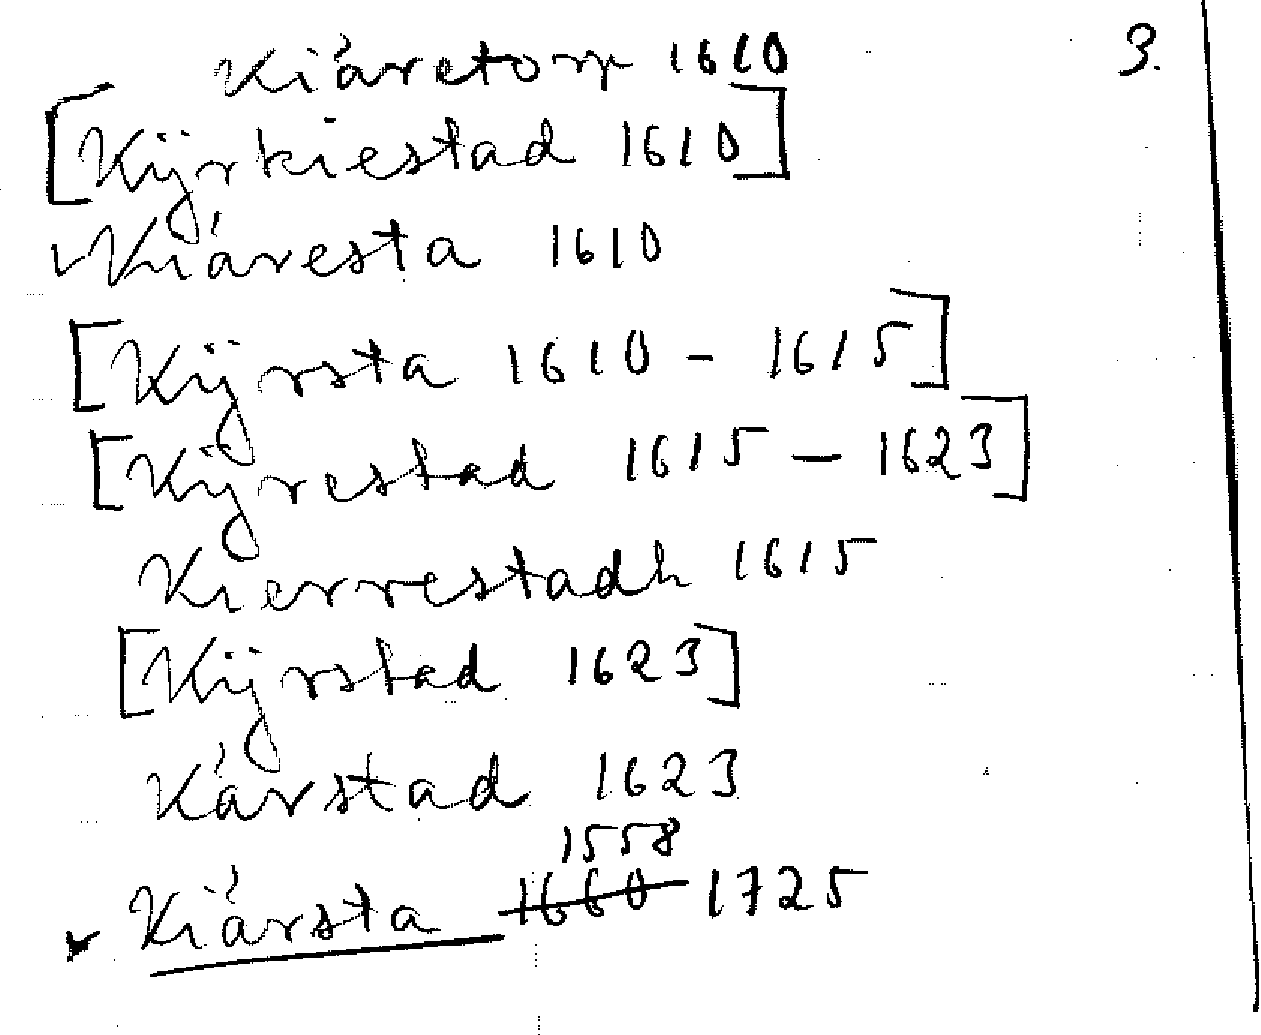 Kiáretorp 1610 3.
[Kijrkiestad 1610]
Kiáresta 1610
[Kijrsta 1610 - 1615]
[Kijrestad 1615 - 1623]
Kierrestadh 1615
[Kijrstad 1623]
Kárstad 1623
1558
Kiársta 1660 1725